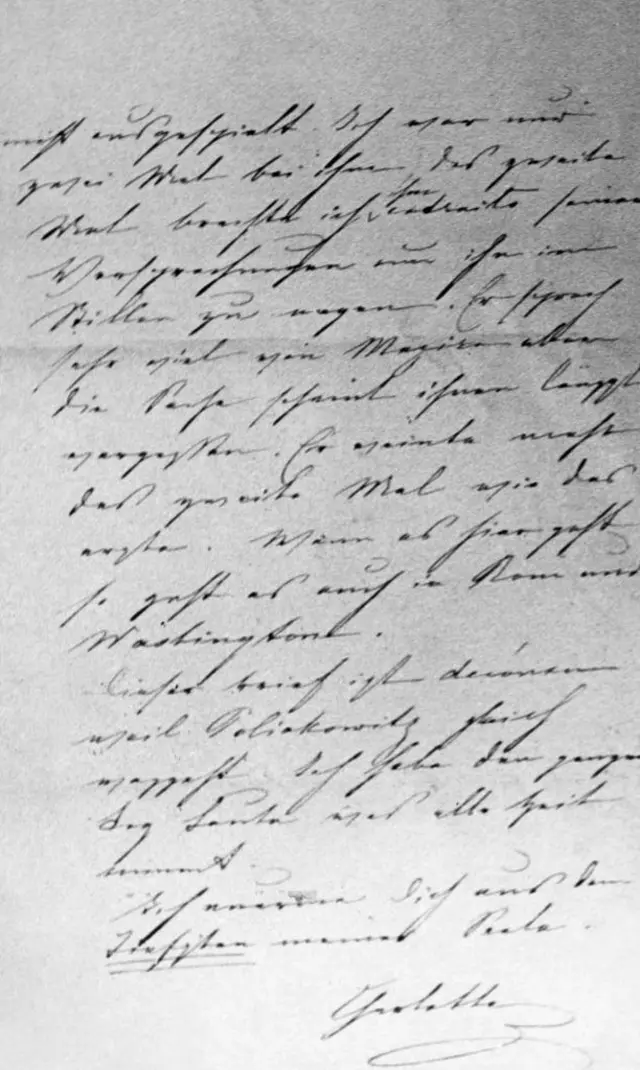 nicht ausgespielt. Ich war nur
zwei Mal bei ihm, das zweite
Mal brachte ich seine
Versprechungen um ihn im
Stillen zu
Er sprach
sehr viel von Mexico aber
die Sache scheint ihnen längst
vergessen. Er weinte mehr
das zweite Mal wie das
erste. Wenn es hier geht
so geht es auch in Rom und
Washington.
Dieser brief ist
weil gleich
weggeht. Ich habe den ganzen
Tag Leute was alle Zeit
nimmt.
Ich umarme Dich aus dem
Tiefsten meiner Seele.
Charlotte